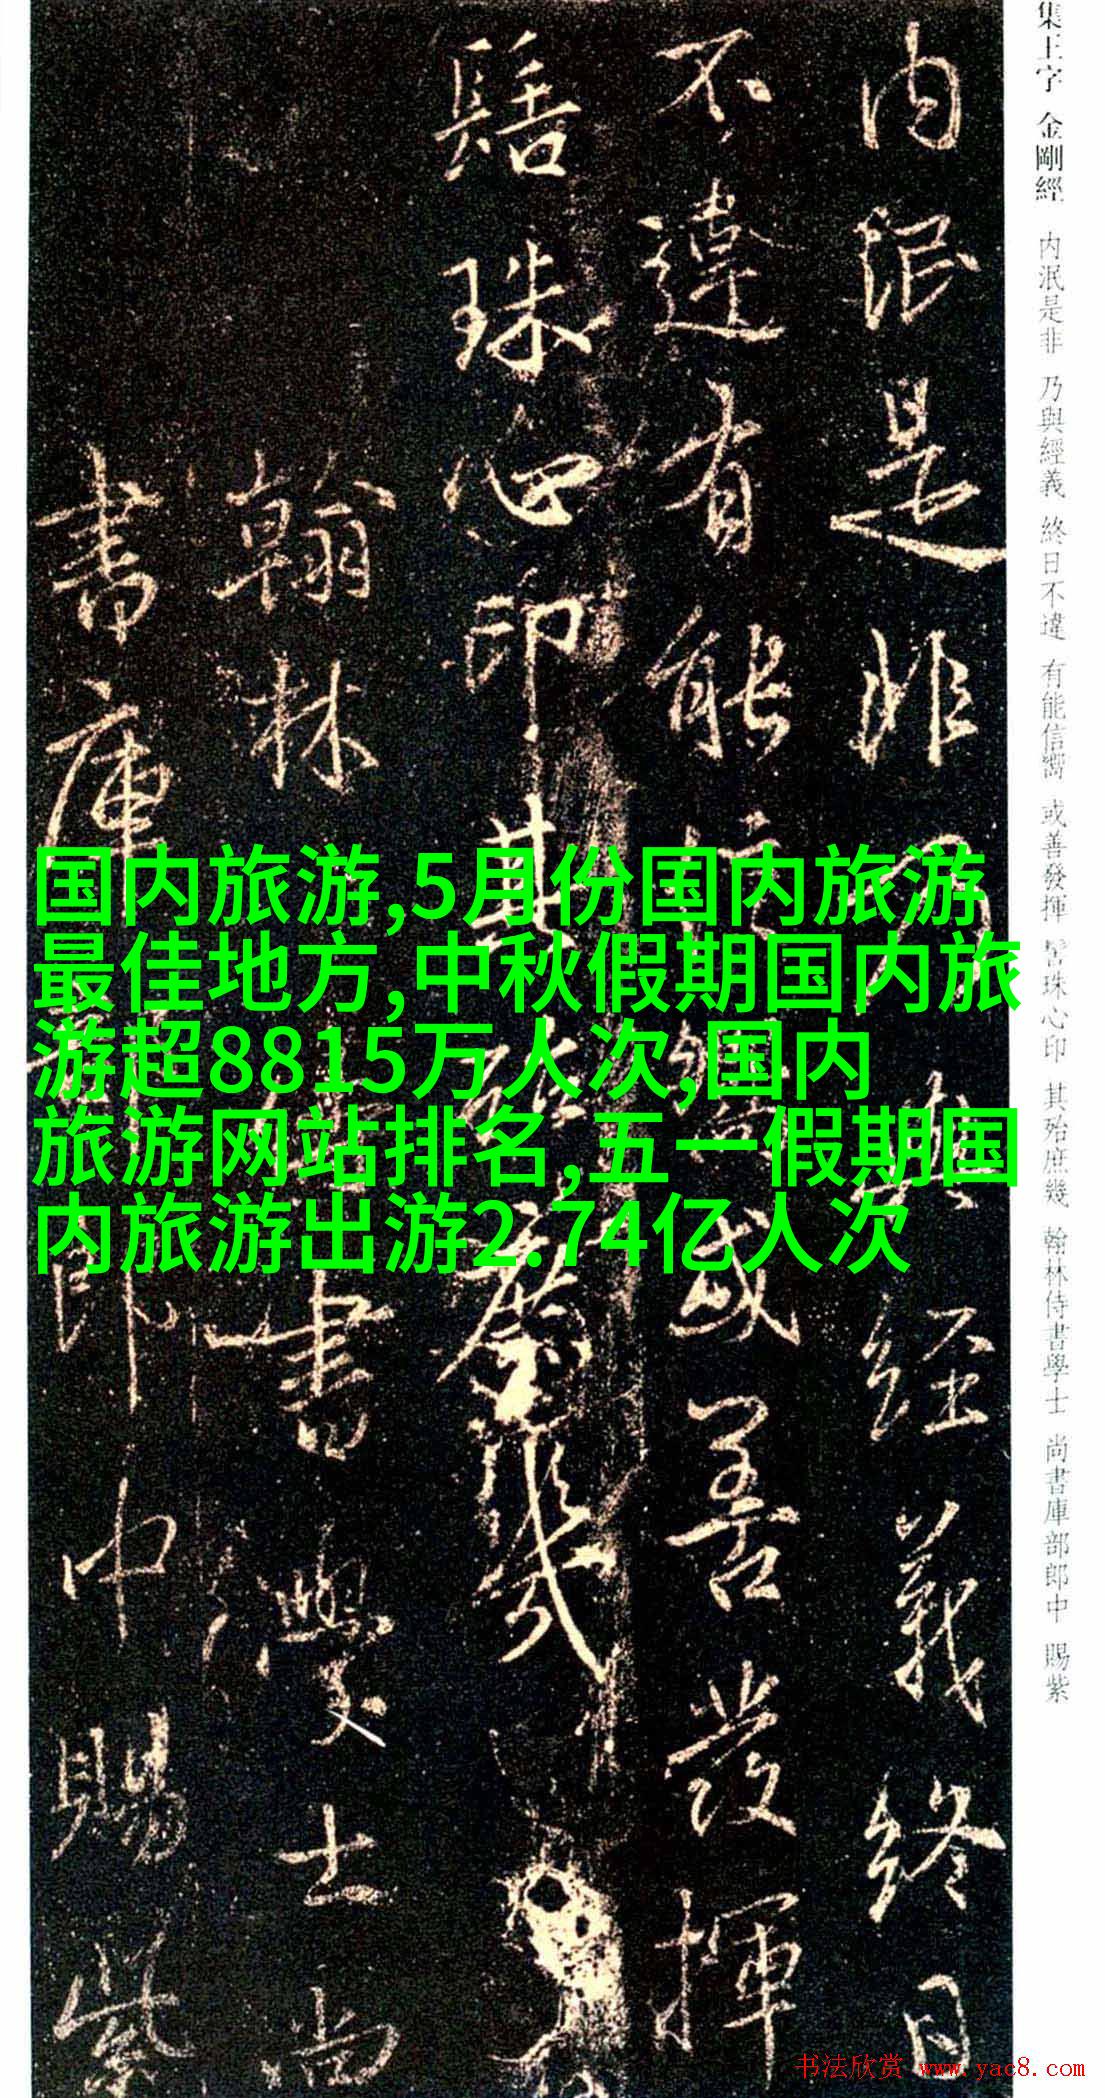 集王字 金剛經 内泯是非 乃與經義 終日不違 有能信嚮 或善發揮 髻珠心印 其殆庶幾 翰林侍書學士 尚書庫部郎中 賜紫
内泯是非乃與經義終日
不違有能信嚮或善發揮
髻珠心印其殆庶幾
翰林侍書學士尚
書庫部郎中賜紫
国内旅游,5月份国内旅游
最佳地方,中秋假期国内旅
游超8815万人次,国内
旅游网站排名,五一假期国
内旅游出游2.74亿人次
书法欣赏 www.yac8.com